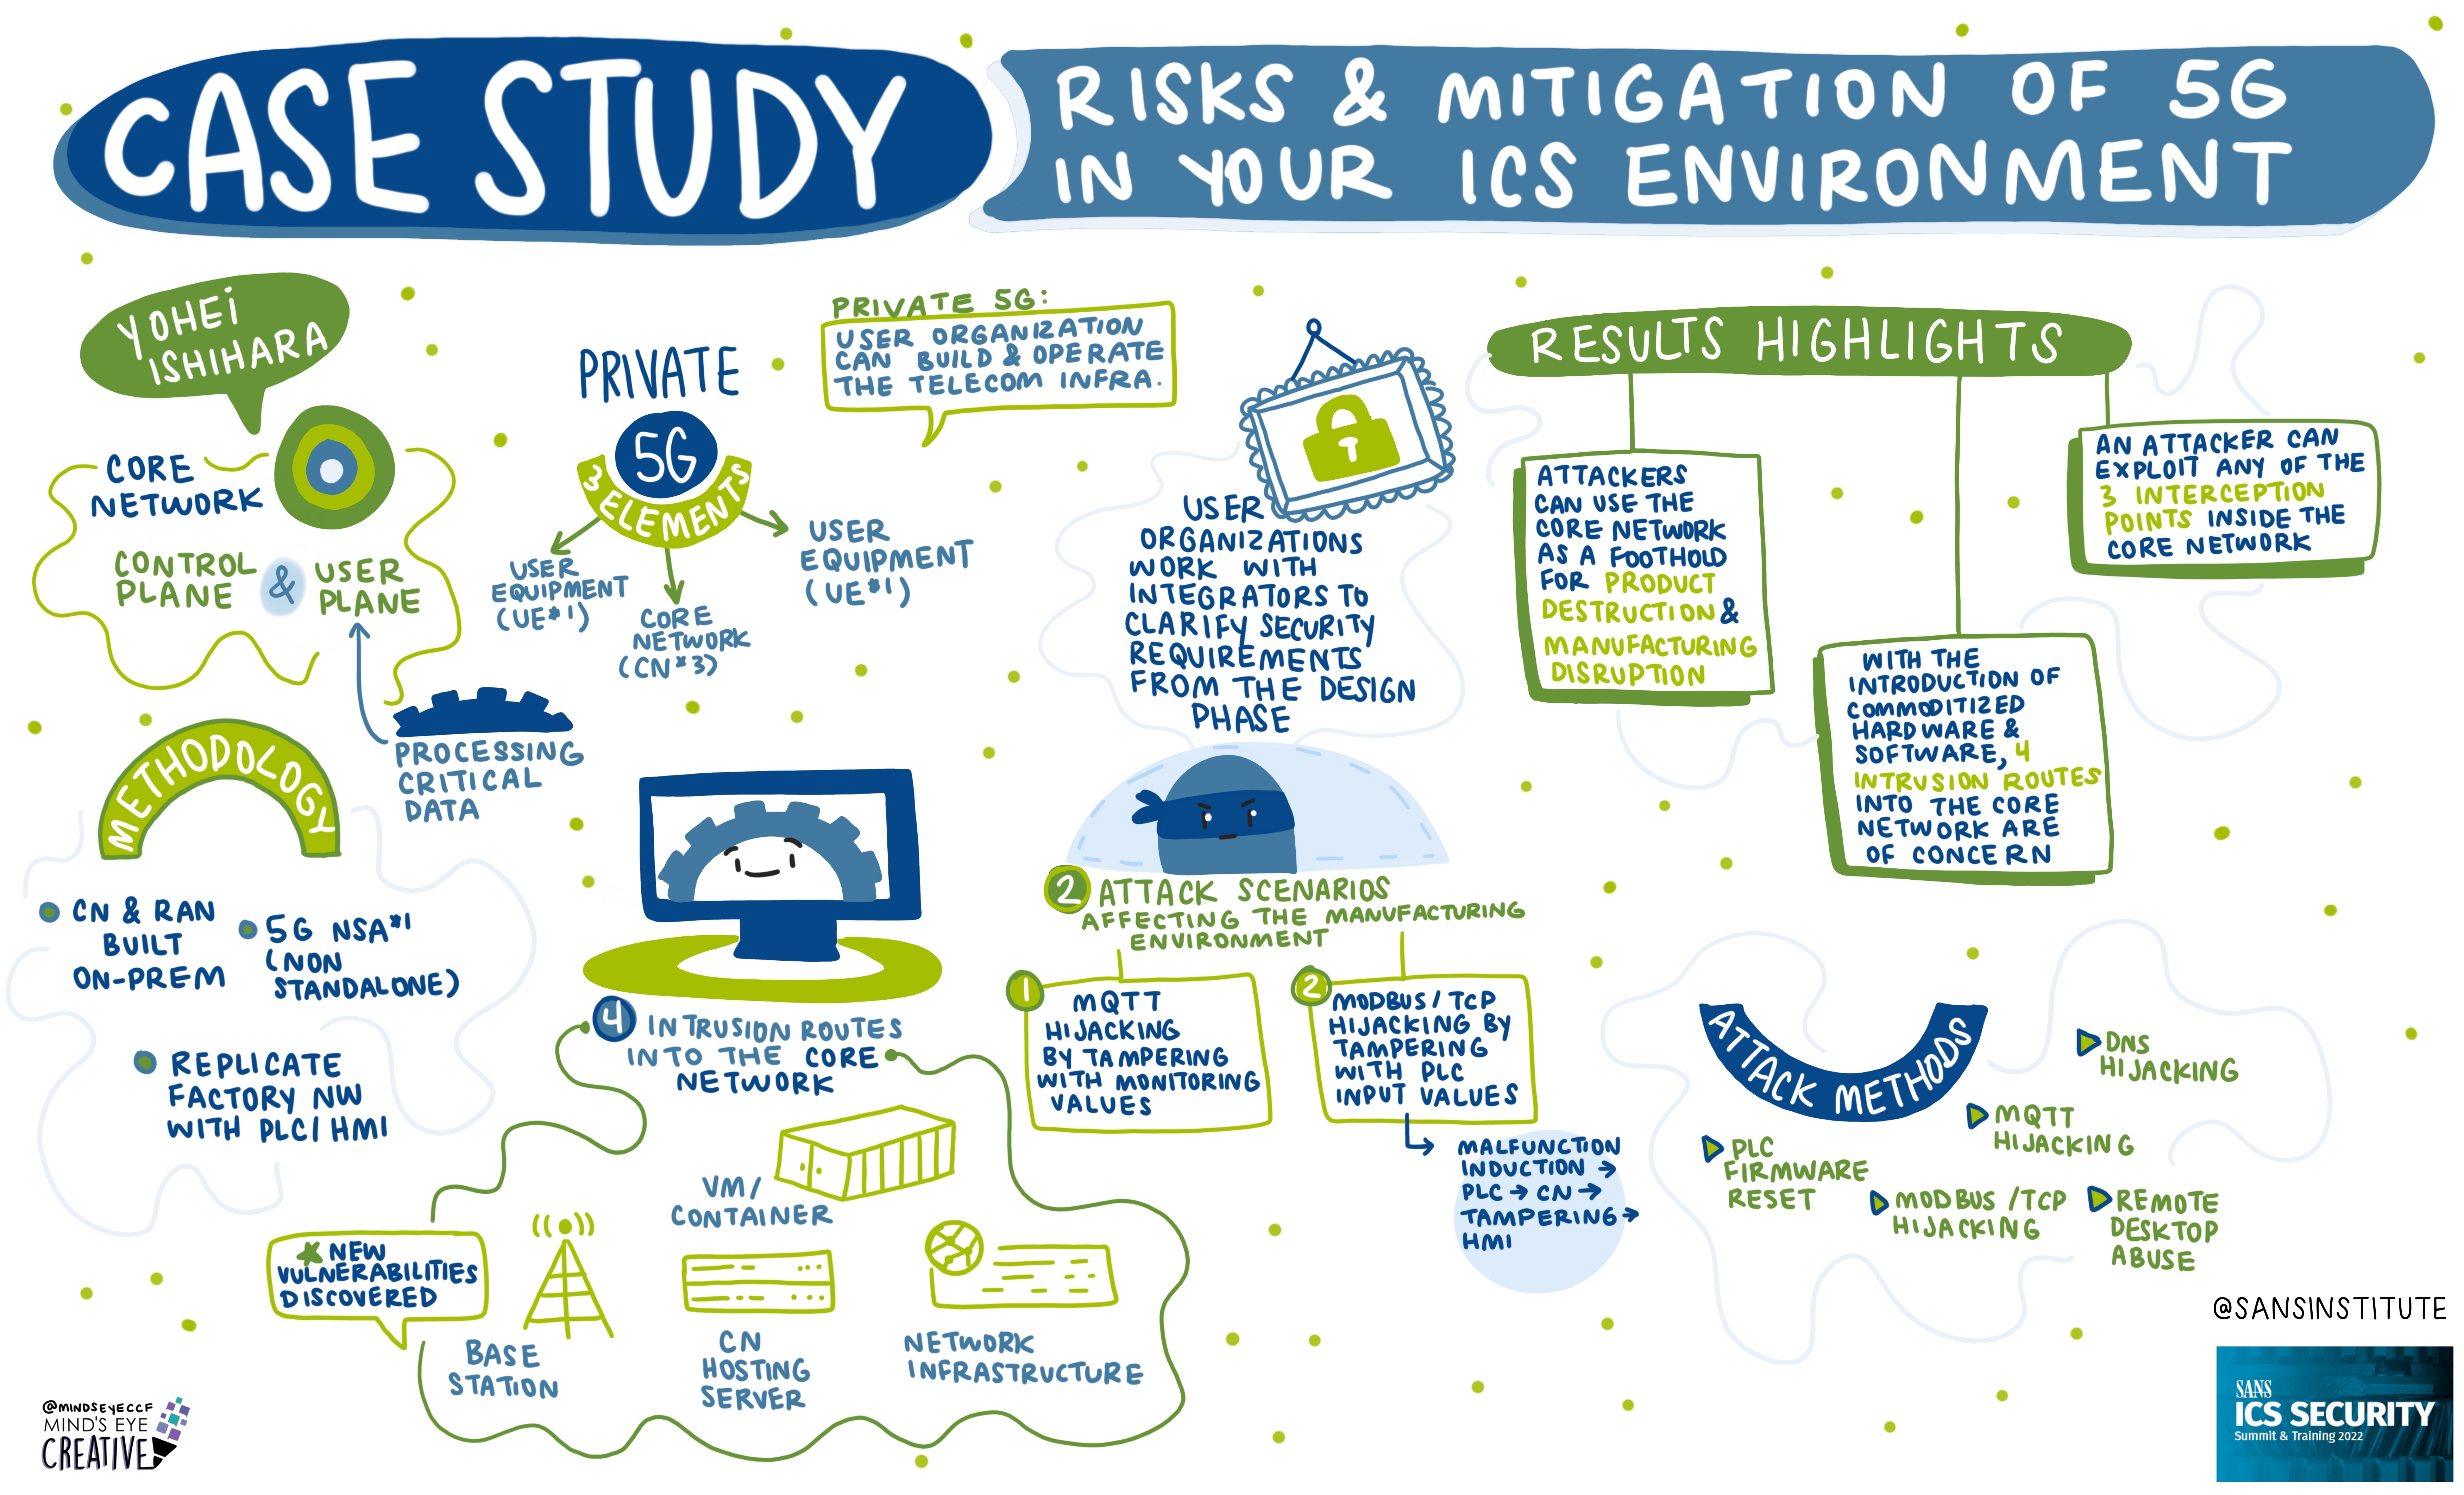 CASE STUDY
RISKS & MITIGATION OF 5G
IN YOUR ICS ENVIRONMENT
YOHEI
ISHIHARA
CORE
NETWORK
CONTROL
PLANE
&
USER
PLANE
PROCESSING
CRITICAL
DATA
PRIVATE
5G
3 ELEMENTS
USER
EQUIPMENT
(UE*1)
CORE
NETWORK
(CN*3)
USER
EQUIPMENT
(UE*1)
PRIVATE 5G:
USER ORGANIZATION
CAN BUILD & OPERATE
THE TELECOM INFRA.
USER
ORGANIZATIONS
WORK WITH
INTEGRATORS TO
CLARIFY SECURITY
REQUIREMENTS
FROM THE DESIGN
PHASE
RESULTS HIGHLIGHTS
ATTACKERS
CAN USE THE
CORE NETWORK
AS A FOOTHOLD
FOR PRODUCT
DESTRUCTION &
MANUFACTURING
DISRUPTION
WITH THE
INTRODUCTION OF
COMMODITIZED
HARDWARE &
SOFTWARE, 4
INTRUSION ROUTES
INTO THE CORE
NETWORK ARE
OF CONCERN
AN ATTACKER CAN
EXPLOIT ANY OF THE
3 INTERCEPTION
POINTS INSIDE THE
CORE NETWORK
METHODOLOGY
CN & RAN
BUILT
ON-PREM
5G NSA*1
(NON
STANDALONE)
REPLICATE
FACTORY NW
WITH PLC/HMI
4 INTRUSION ROUTES
INTO THE CORE
NETWORK
NEW
VULNERABILITIES
DISCOVERED
BASE
STATION
VM/
CONTAINER
CN
HOSTING
SERVER
NETWORK
INFRASTRUCTURE
2 ATTACK SCENARIOS
AFFECTING THE MANUFACTURING
ENVIRONMENT
1
MQTT
HIJACKING
BY TAMPERING
WITH MONITORING
VALUES
2
MODBUS/TCP
HIJACKING BY
TAMPERING
WITH PLC
INPUT VALUES
MALFUNCTION
INDUCTION →
PLC → CN →
TAMPERING →
HMI
ATTACK METHODS
PLC
FIRMWARE
RESET
MODBUS/TCP
HIJACKING
MQTT
HIJACKING
DNS
HIJACKING
REMOTE
DESKTOP
ABUSE
@SANSINSTITUTE
SANS
ICS SECURITY
Summit & Training 2022
@MINDSEYECCF
MIND'S EYE
CREATIVE